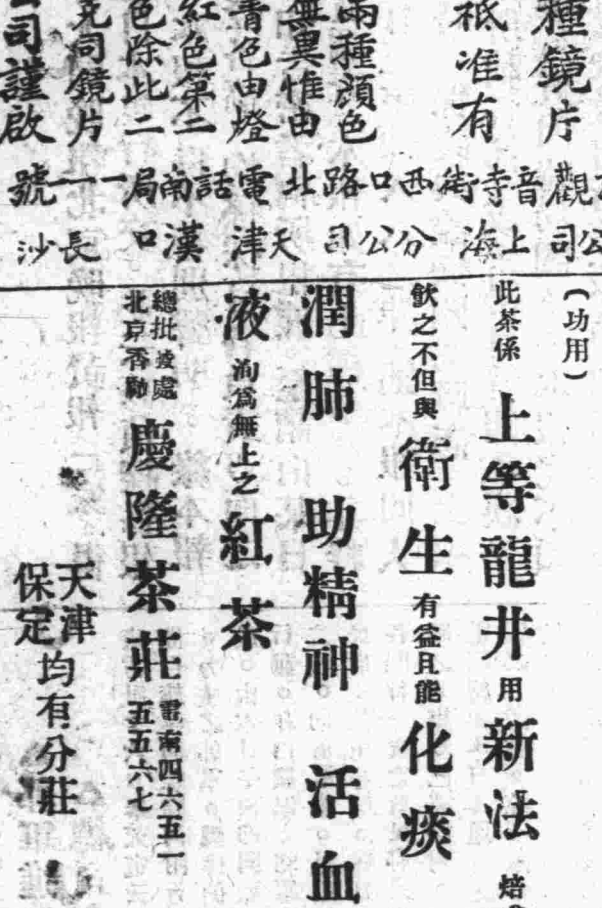 種鏡片
祗准有
兩種顏色
無異惟由
青色由燈
紅色第二
色除此二
克同鏡片
司謹啟
觀音寺街西口路北 電話南局一一號
公司上海分公司天津漢口長沙
(功用)
此茶係上等龍井用新法焙
飲之不但與衛生有益且能化痰
潤肺 助精神 活血
液洵為無上之紅茶
總批發處
北京香廠
慶隆茶莊
電南四六五一
五五六七
天津
保定
均有分莊